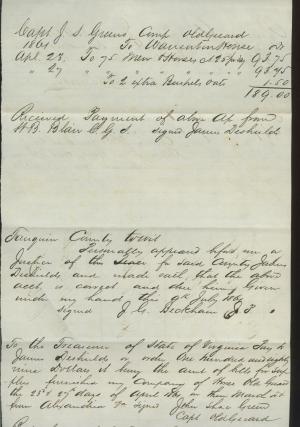 Capt J. S. Green Comp Old Guard
1861 To Warrenton House Dr
Apl. 23. To 75 Men & Horses 93.75
" 27 " " " " " 93.75
To 2 extra Bushels oats 1.50
189.00
Received Payment of above at from
W.B. Blair C.G.S. signed James Deshields
Fauquier County to wit
Personally appeared before me a
Justice of the Peace for said County James
Deshields and made oath, that the above
acct. is correct and true. Given
under my hand the 9th July 1861
signed J. G. Beckham J P
To the Treasurer of State of Virginia Pay to
James Deshields or order One Hundred and eighty
nine Dollars it being the amt of bills for
furnishing my Company of Horse Old Guard
the 23d & 27th days of April on their March
from Alexandria signed John Shac Green
Capt Old Guard